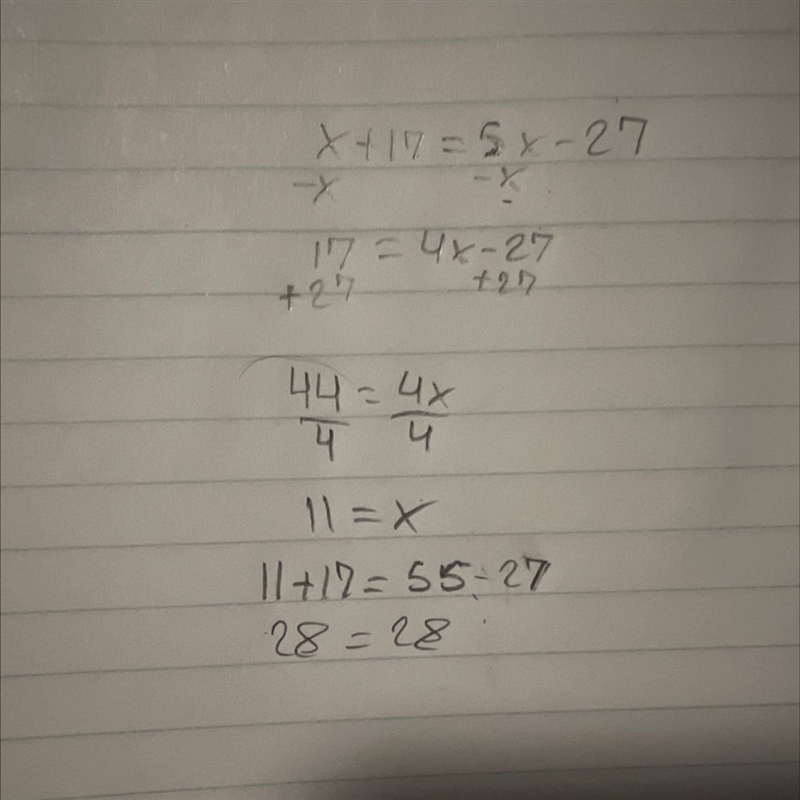 x+17=5x-27
-x -x
17=4x-27
+27 +27
44=4x
4 4
11=x
11+17=55-27
28=28